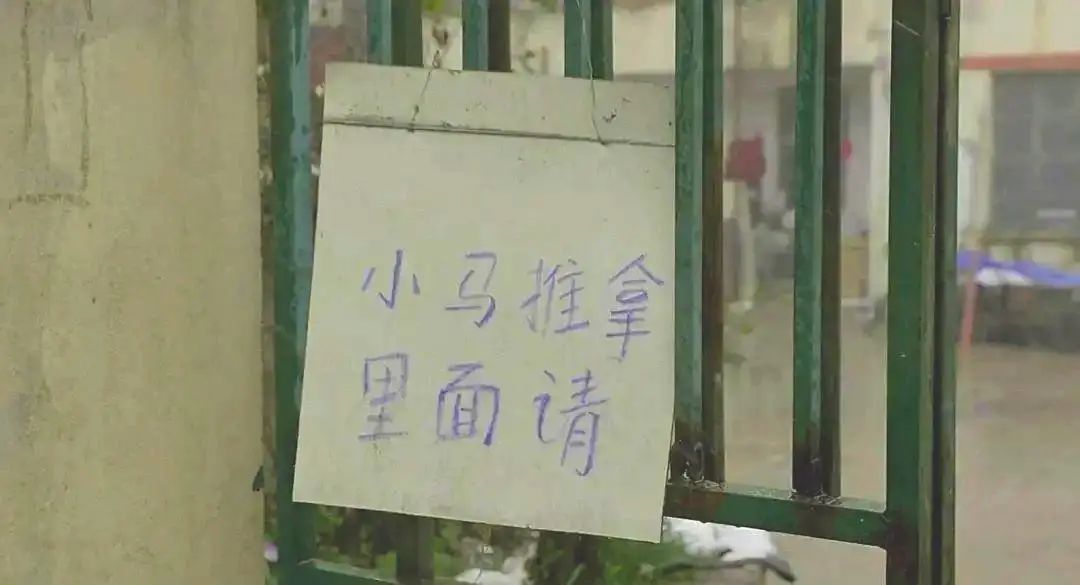 小马推拿
里面请